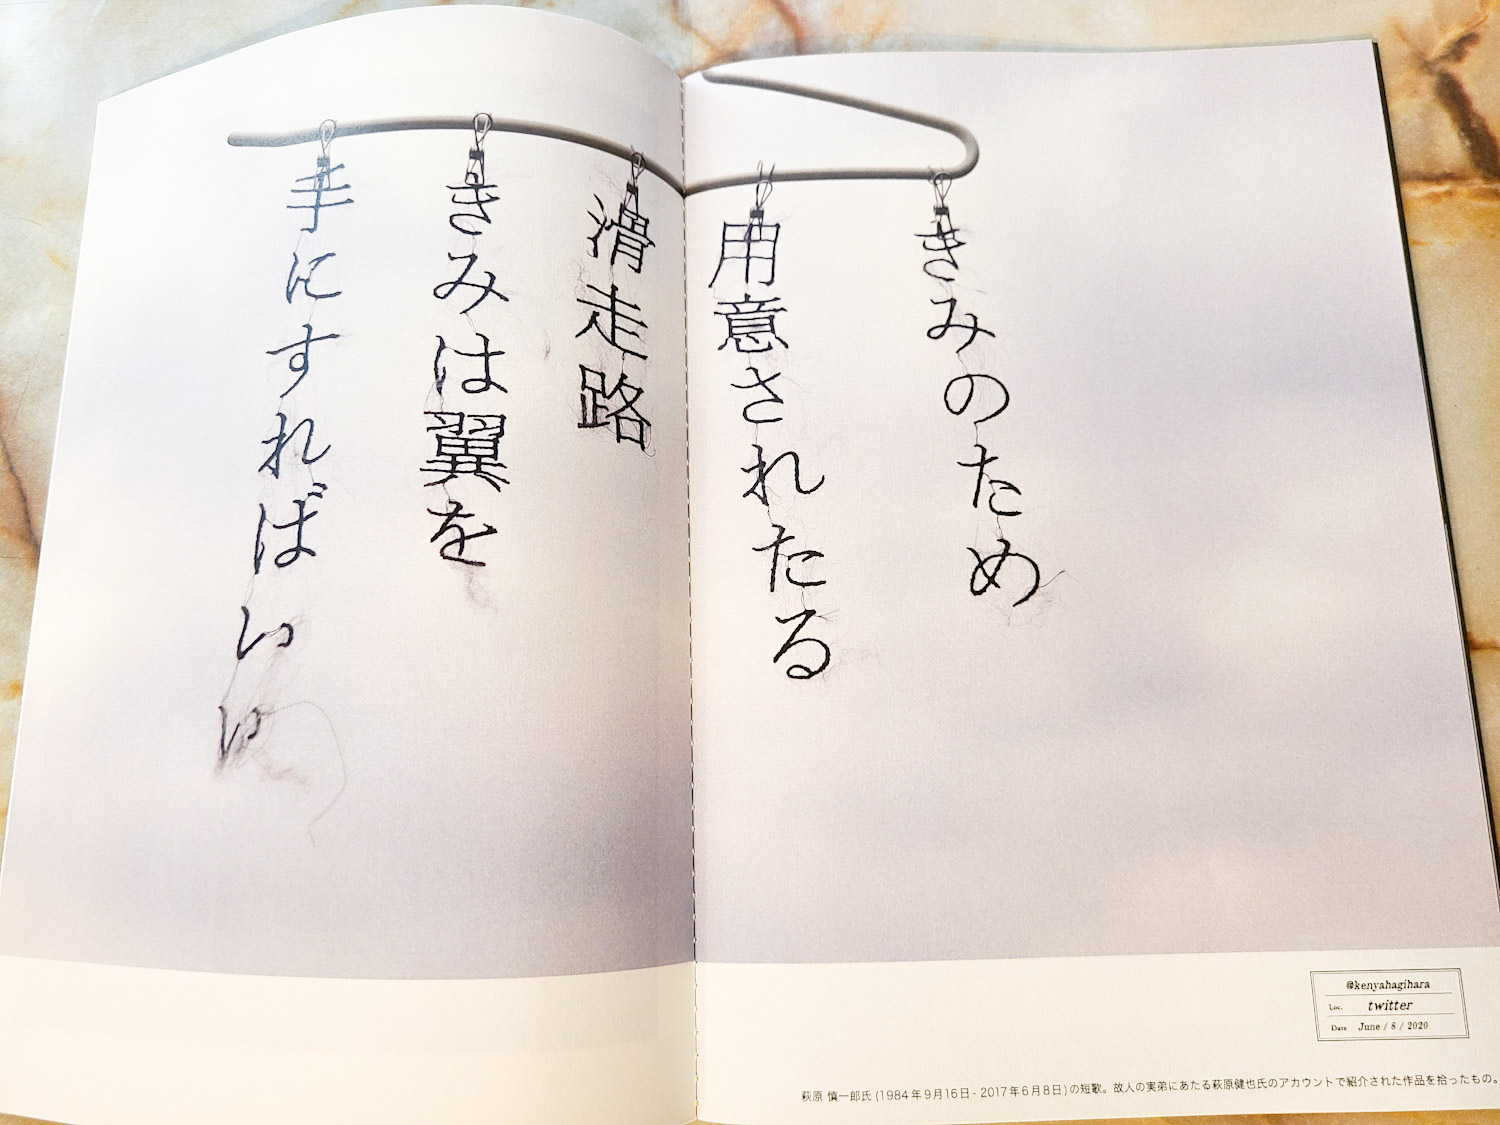 きみのため
用意されたる
滑走路
きみは翼を
手にすればいい
@kenyahagihara
Loc. twitter
Date June / 8 / 2020
萩原 慎一郎氏 (1984年9月16日 - 2017年6月8日) の短歌。故人の実弟にあたる萩原健也氏のアカウントで紹介された作品を拾ったもの。